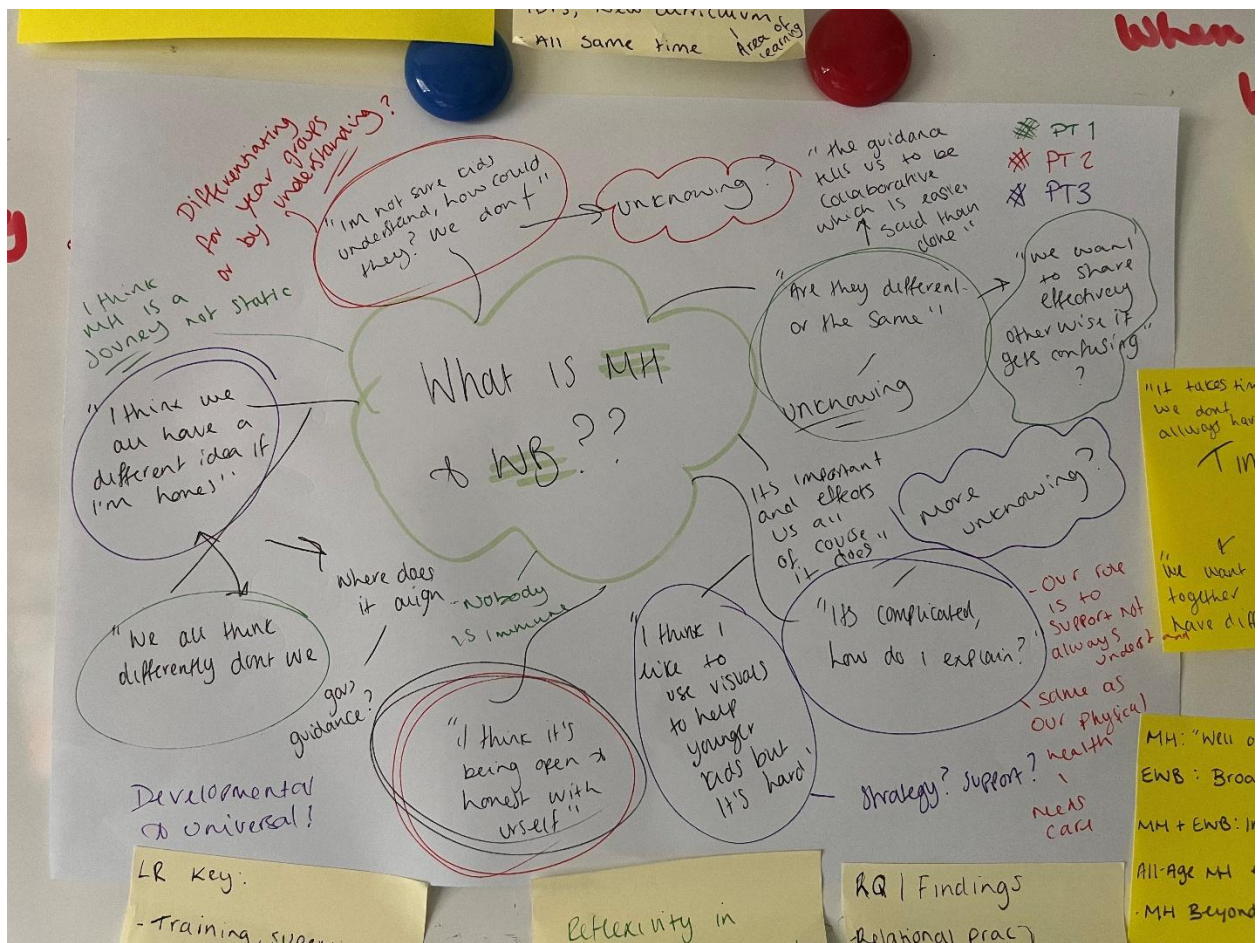 New curriculum
- All same time
Area of
learning
When
Differentiating
for year groups
or by
understanding?
"I'm not sure kids
understand, how could
they? We don't"
unknowing?
"the guidance
tells us to be
collaborative
which is easier
said than
done"
PT 1
PT 2
PT3
I think
MH is a
Journey not static
"Are they different
or the same"
unknowing
"We want
to share
effectively
otherwise it
gets confusing"
?
What is MH
& WB??
"I think we
all have a
different idea if
I'm hones"
"It takes
we dont
allways
more
unknowing?
Its important
and effects
us all
of course
it does"
where does
it align
gov
guidance?
- Nobody
is immune
"We all think
differently dont we
"I think it's
being open &
honest with
urself"
"I think i
like to
use visuals
to help
younger
kids but
it's hard
"Its complicated,
how do i explain?"
- Our role
is to
support not
always
understand
same as
our physical
health
needs
care
Strategy? Support?
Developmental
& universal!
We want
together
have
MH: "Well
EWB:
MH + EWB:
All-Age MH
- MH Beyond
LR Key:
- Training,
Reflexivity in
RQ1 Findings
-Relational